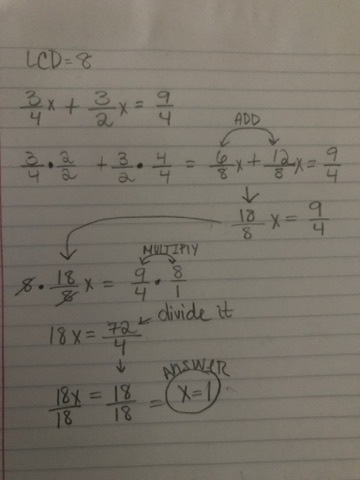 LCD=8
3/4x + 3/2x = 9/4
ADD
3/4 · 2/2 + 3/2 · 4/4 = 6/8x + 12/8x = 9/4
18/8x = 9/4
MULTIPLY
8 · 18/8x = 9/4 · 8/1
18x = 72/4 divide it
ANSWER
18x/18 = 18/18 = x=1